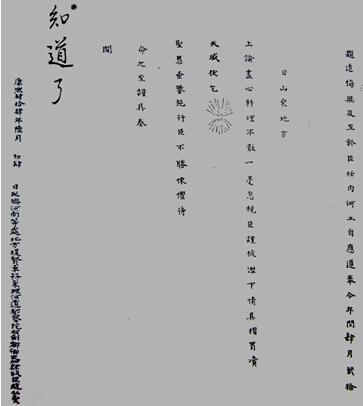 追悔無及至於臣任內河工自應遵奉今年閏肆月貳拾
日山東地方
上諭盡心料理不敢一毫忽視臣謹披瀝下情具摺冒瀆
天威伏乞
聖恩垂鑒施行臣不勝悚懼待
命之至謹具奏
聞
知道了
康熙肆拾肆年陸月 初肆 日巡撫河南等處地方提督軍務兼理河道都察院右副都御史